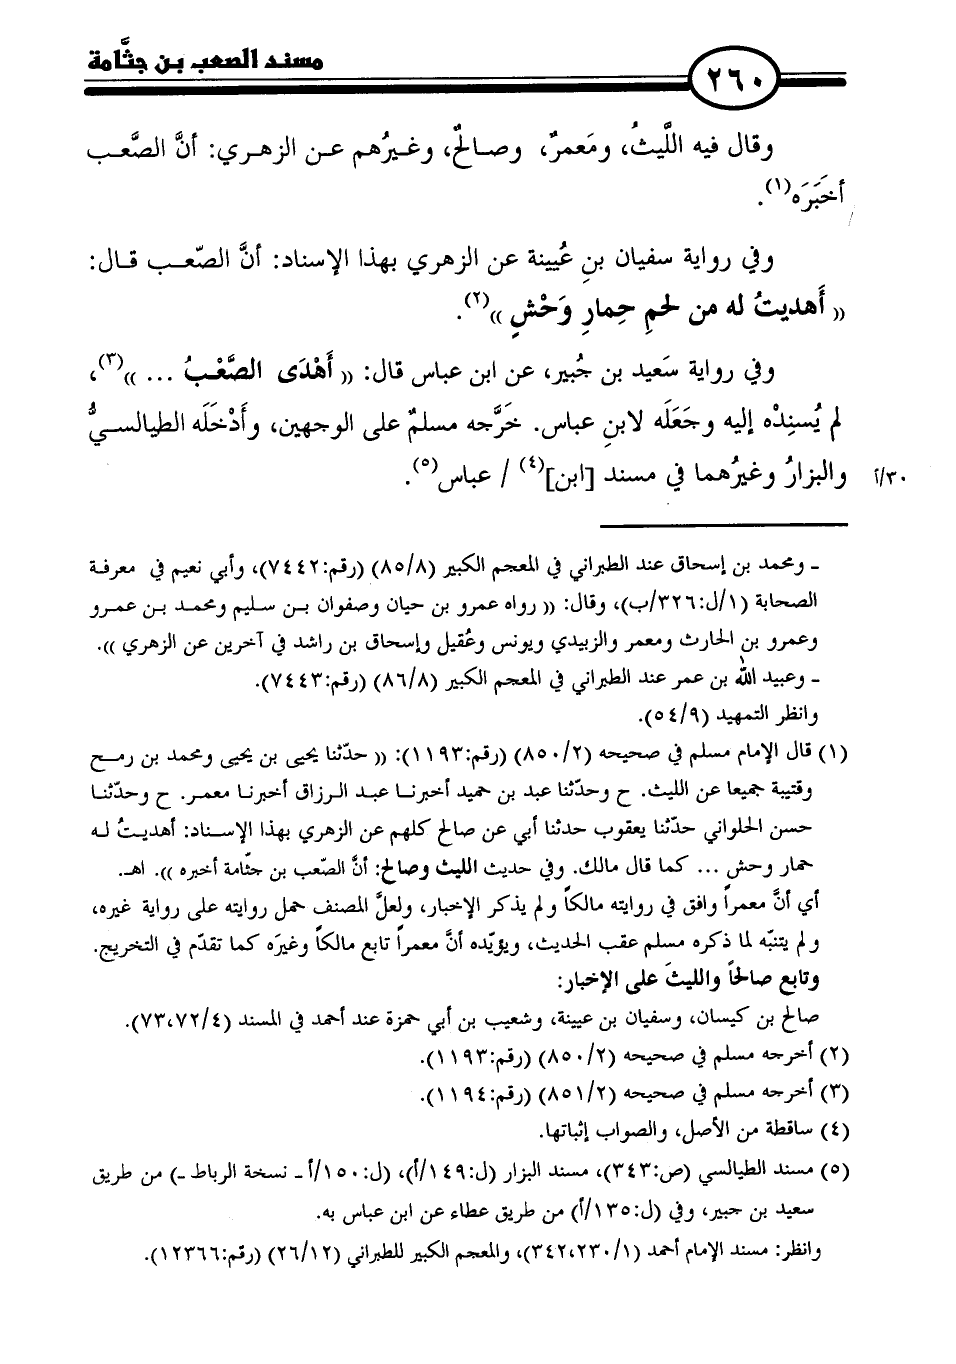 مسند الصعب بن جثَّامة
٢٦٠
وقال فيه اللَّيثُ، ومَعمرٌ، وصالحٌ، وغيرُهم عن الزهري: أنَّ الصَّعب
أخبَرَه(١).
وفي رواية سفيان بنِ عُيينة عن الزهري بهذا الإسناد: أنَّ الصّعب قال:
(( أَهديتُ له من لحمِ حِمارِ وَحْشٍ ))(٢).
وفي رواية سَعيد بن جُبير، عن ابن عباس قال: (( أَهْدَى الصَّعْبُ ... ))(٣)،
لم يُسنِدْه إليه وجَعَلَه لابنِ عباس. خَرَّجه مسلمٌ على الوجهين، وأَدْخَلَه الطيالسيُّ
والبزارُ وغيرُهما في مسند [ابن](٤) / عباس(٥).
٣٠/أ
ـ ومحمد بن إسحاق عند الطبراني في المعجم الكبير (٨٥/٨) (رقم:٧٤٤٢)، وأبي نعيم في معرفة
الصحابة (١/ل:٣٢٦/ب)، وقال: (( رواه عمرو بن حيان وصفوان بن سليم ومحمد بن عمرو
وعمرو بن الحارث ومعمر والزبيدي ويونس وعُقيل وإسحاق بن راشد في آخرين عن الزهري )).
ـ وعبيد الله بن عمر عند الطبراني في المعجم الكبير (٨٦/٨) (رقم:٧٤٤٣).
وانظر التمهيد (٥٤/٩).
(١) قال الإمام مسلم في صحيحه (٨٥٠/٢) (رقم:١١٩٣): (( حدّثنا يحيى بن يحيى ومحمد بن رمح
وقتيبة جميعا عن الليث. ح وحدّثنا عبد بن حميد أخبرنا عبد الرزاق أخبرنا معمر. ح وحدّثنا
حسن الحلواني حدّثنا يعقوب حدثنا أبي عن صالح كلهم عن الزهري بهذا الإسناد: أهديتُ له
حمار وحش ... كما قال مالك. وفي حديث الليث وصالح: أنَّ الصّعب بن جثّامة أخبره )). اهـ.
أي أنَّ معمراً وافق في روايته مالكاً ولم يذكر الإخبار، ولعلَّ المصنف حمل روايته على رواية غيره،
ولم يتنبّه لما ذكره مسلم عقب الحديث، ويؤيّده أنَّ معمراً تابع مالكاً وغيرَه كما تقدّم في التخريج.
وتابع صالحاً والليثَ على الإخبار:
صالح بن كيسان، وسفيان بن عيينة، وشعيب بن أبي حمزة عند أحمد في المسند (٧٣،٧٢/٤).
(٢) أخرجه مسلم في صحيحه (٨٥٠/٢) (رقم:١١٩٣).
(٣) أخرجه مسلم في صحيحه (٨٥١/٢) (رقم:١١٩٤).
(٤) ساقطة من الأصل، والصواب إثباتها.
(٥) مسند الطيالسي (ص:٣٤٣)، مسند البزار (ل:١٤٩/أ)، (ل:١٥٠/أ ـ نسخة الرباط ـ) من طريق
سعيد بن جبير، وفي (ل:١٣٥/أ) من طريق عطاء عن ابن عباس به.
وانظر: مسند الإمام أحمد (٣٤٢،٢٣٠/١)، والمعجم الكبير للطبراني (٢٦/١٢) (رقم:١٢٣٦٦).